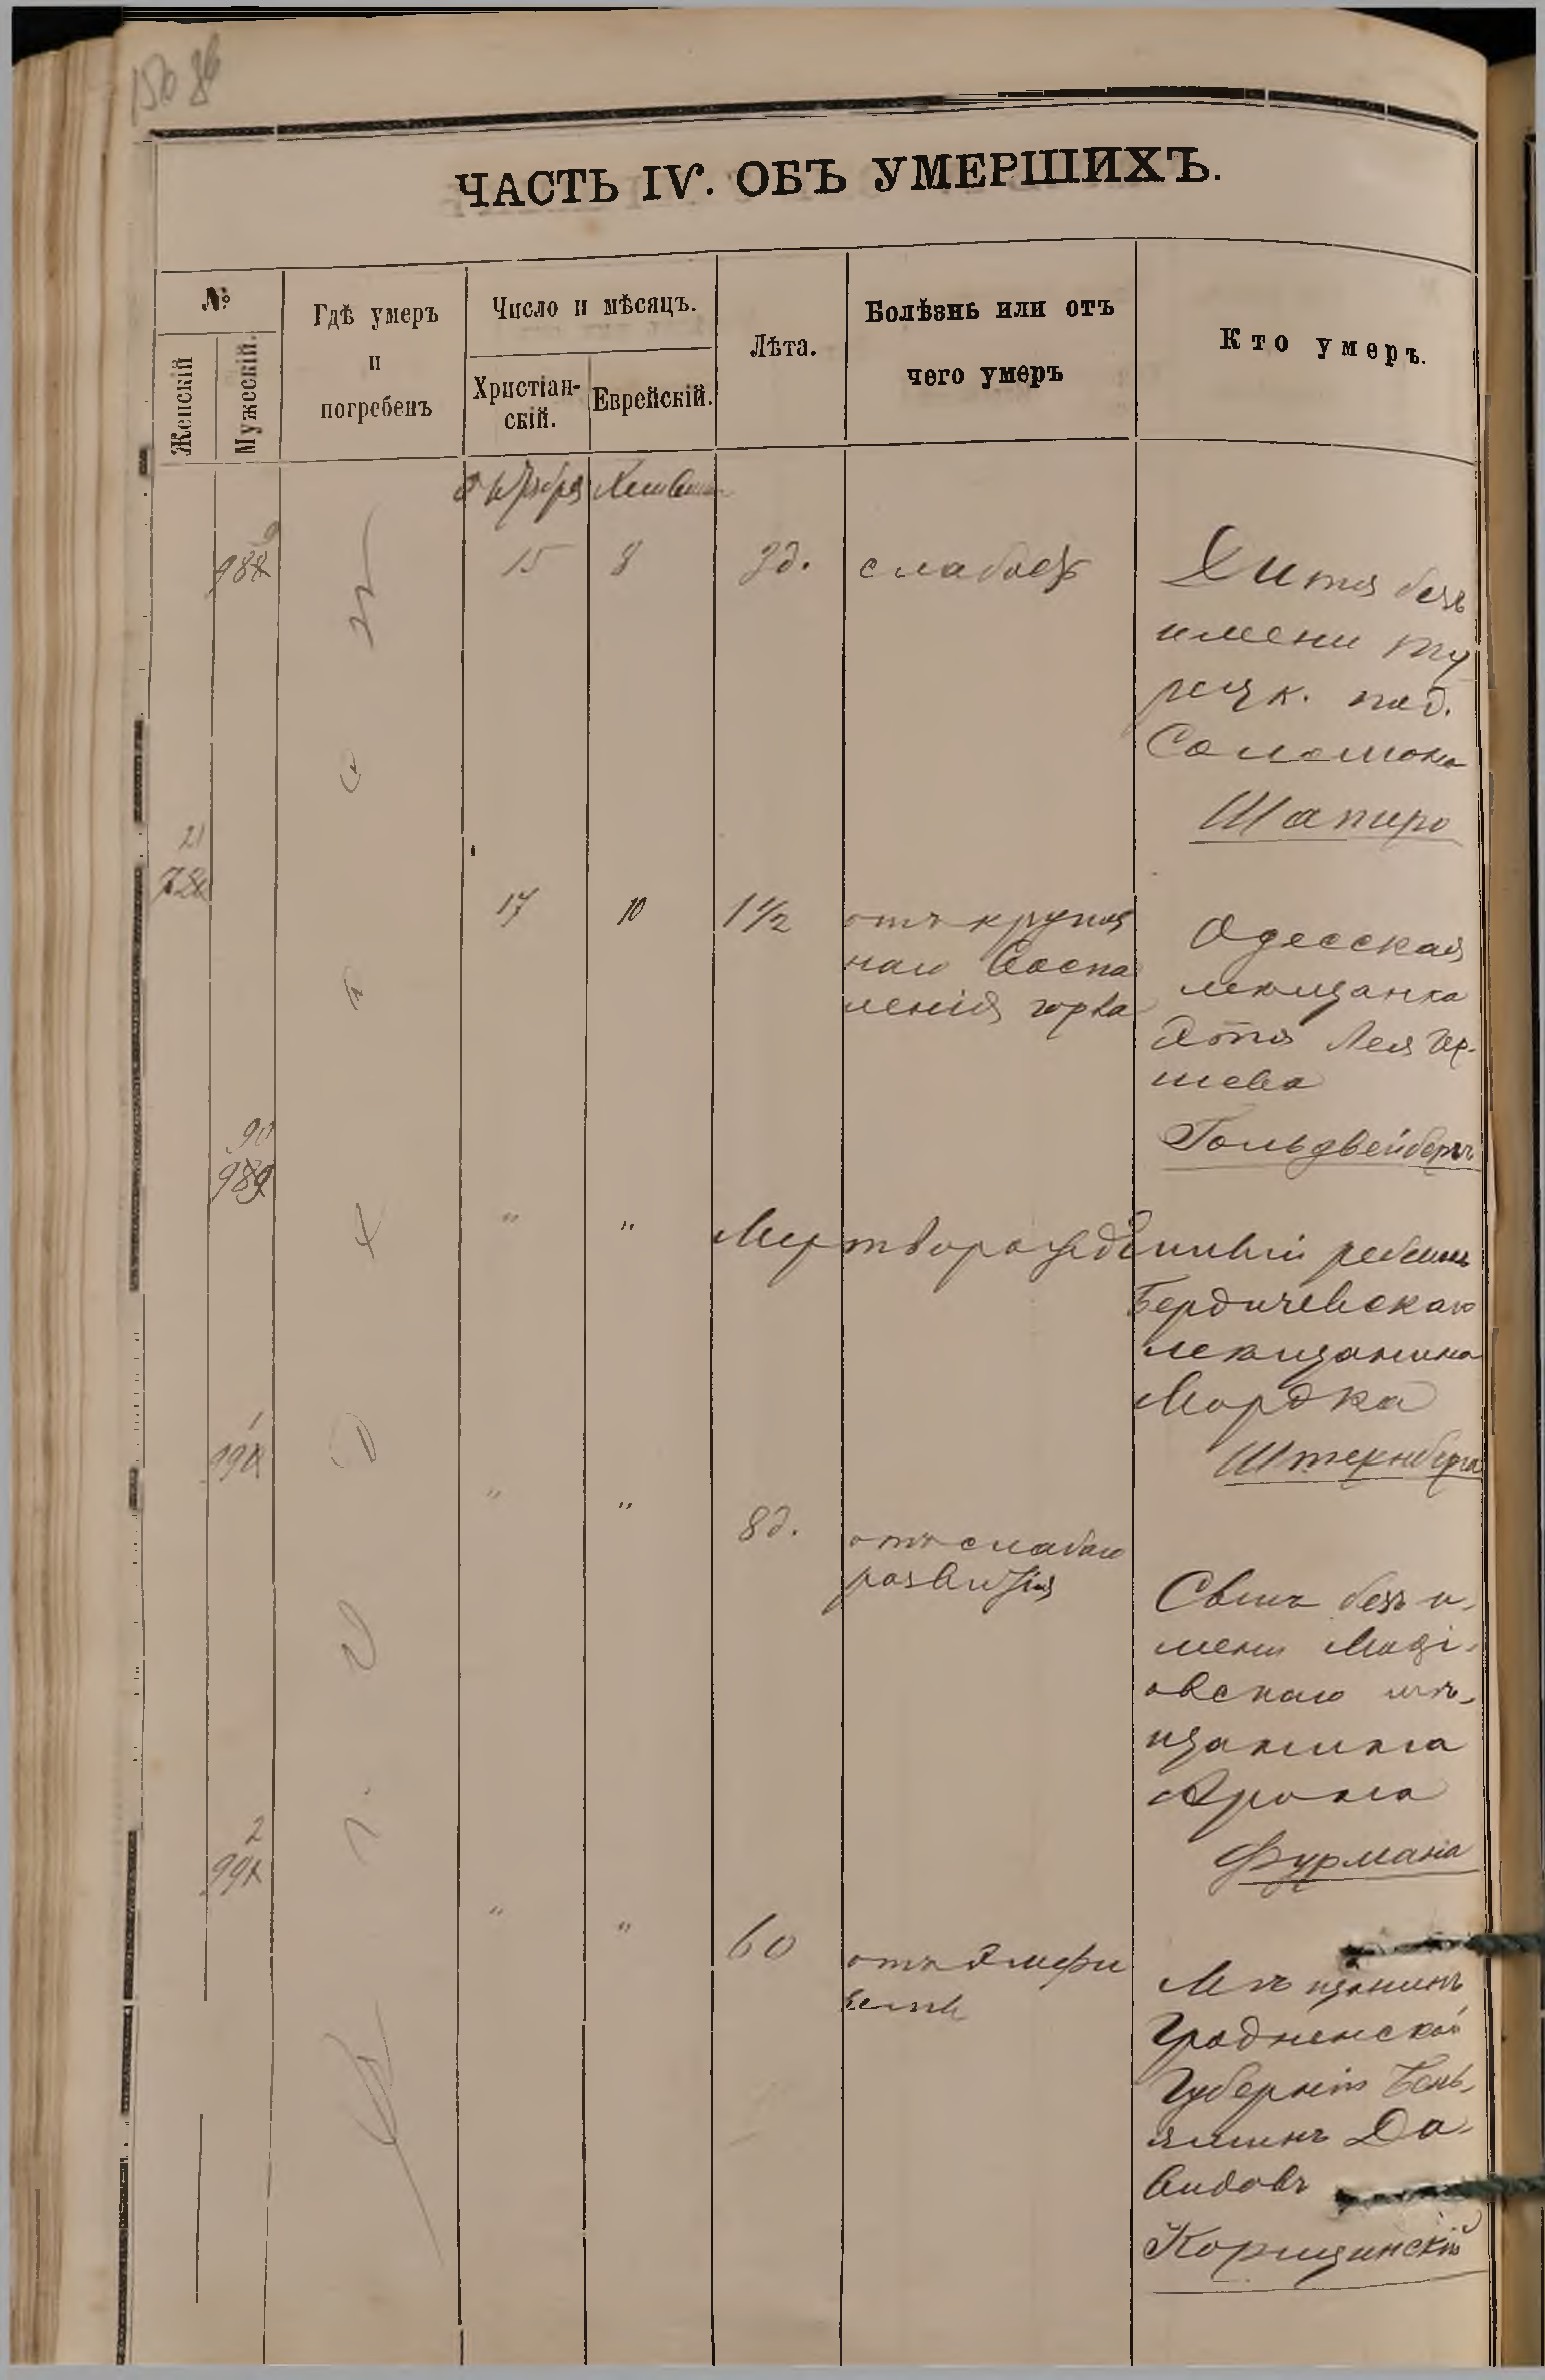 150 86
ЧАСТЬ IV. ОБЪ УМЕРШИХЪ.
№
Женскій
Мужескій.
Гдѣ умеръ
и
погребенъ
Число и мѣсяцъ.
Христіан-
скій.
Еврейскій.
Лѣта.
Болѣзнь или отъ
чего умеръ
Кто умеръ.
октября
9
988
15 8 3д. слабост
Дитя безъ
имени ту
рецк. под.
Соломона
Шапиро
21
720
17 10 1 1/2 отъ крупоз
наго воспа
ленія горла
Одесская
мѣщанка
Лея Гер-
шева
Гольдвейберъ
90
989
" " Мертворожденный ребенокъ
Бердичевскаго
мѣщанина
Мордка
Штернберга
1
990
" " 8д. отъ слабаго
развитія
Сынъ безъ и-
мени
овскаго мѣ-
щанина
Арона
Фурмана
2
991
" " 60 отъ Эмфи
земы
Мѣщанинъ
Гродненской
Губерніи Бень-
яминъ Да-
видовъ
Корицинскій